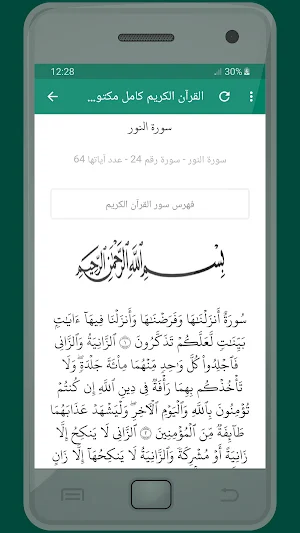 12:28
30%
القرآن الكريم كامل مكتو...
سورة النور
سورة النور - سورة رقم 24 - عدد آياتها 64
فهرس سور القرآن الكريم
بِسْمِ اللَّهِ الرَّحْمَٰنِ الرَّحِيمِ
سُورَةٌ أَنزَلْنَٰهَا وَفَرَضْنَٰهَا وَأَنزَلْنَا فِيهَآ ءَايَٰتٍۭ
بَيِّنَٰتٍ لَّعَلَّكُمْ تَذَكَّرُونَ ۝١ ٱلزَّانِيَةُ وَٱلزَّانِى
فَٱجْلِدُوا۟ كُلَّ وَٰحِدٍ مِّنْهُمَا مِا۟ئَةَ جَلْدَةٍ ۖ وَلَا
تَأْخُذْكُم بِهِمَا رَأْفَةٌ فِى دِينِ ٱللَّهِ إِن كُنتُمْ
تُؤْمِنُونَ بِٱللَّهِ وَٱلْيَوْمِ ٱلْءَاخِرِ ۖ وَلْيَشْهَدْ عَذَابَهُمَا
طَآئِفَةٌ مِّنَ ٱلْمُؤْمِنِينَ ۝٢ ٱلزَّانِى لَا يَنكِحُ إِلَّا
زَانِيَةً أَوْ مُشْرِكَةً وَٱلزَّانِيَةُ لَا يَنكِحُهَآ إِلَّا زَانٍ